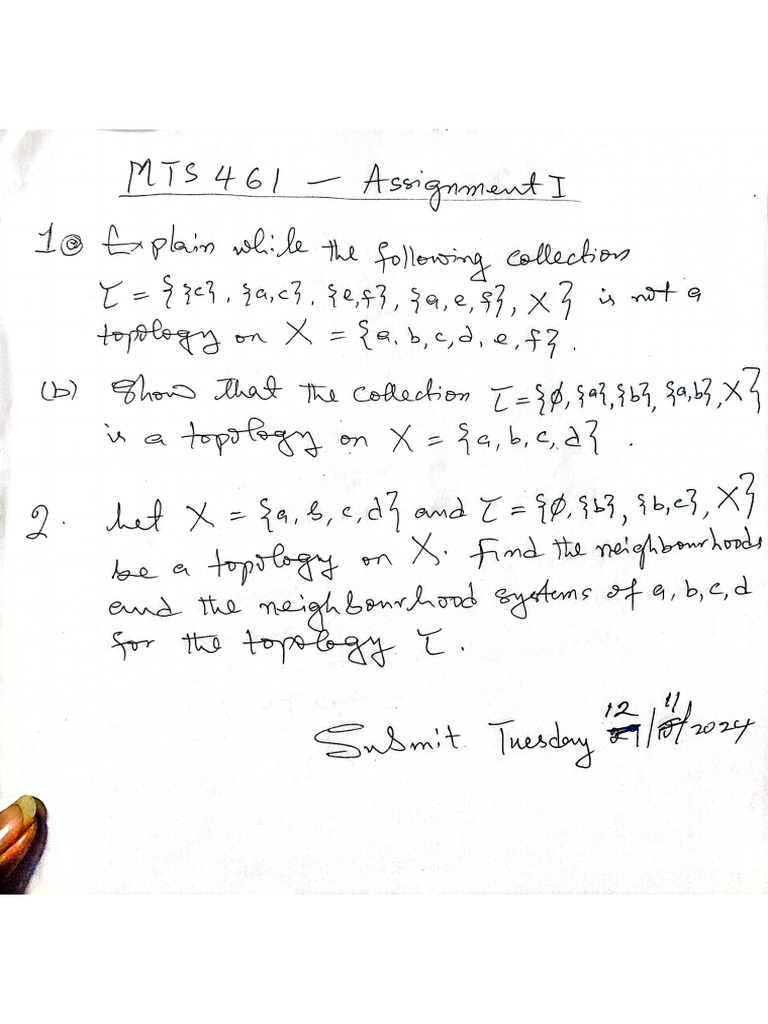 MTS 461 – Assignment I
1 (a) Explain while the following collection
τ = {{c}, {a,c}, {e,f}, {a,e,f}, X} is not a
topology on X = {a, b, c, d, e, f}.
(b) Show that the collection τ = {∅, {a}, {b}, {a,b}, X}
is a topology on X = {a, b, c, d}.
2. Let X = {a, b, c, d} and τ = {∅, {b}, {b,c}, X}
be a topology on X. Find the neighbourhoods
and the neighbourhood systems of a, b, c, d
for the topology τ.
Submit Tuesday 12/11/2024